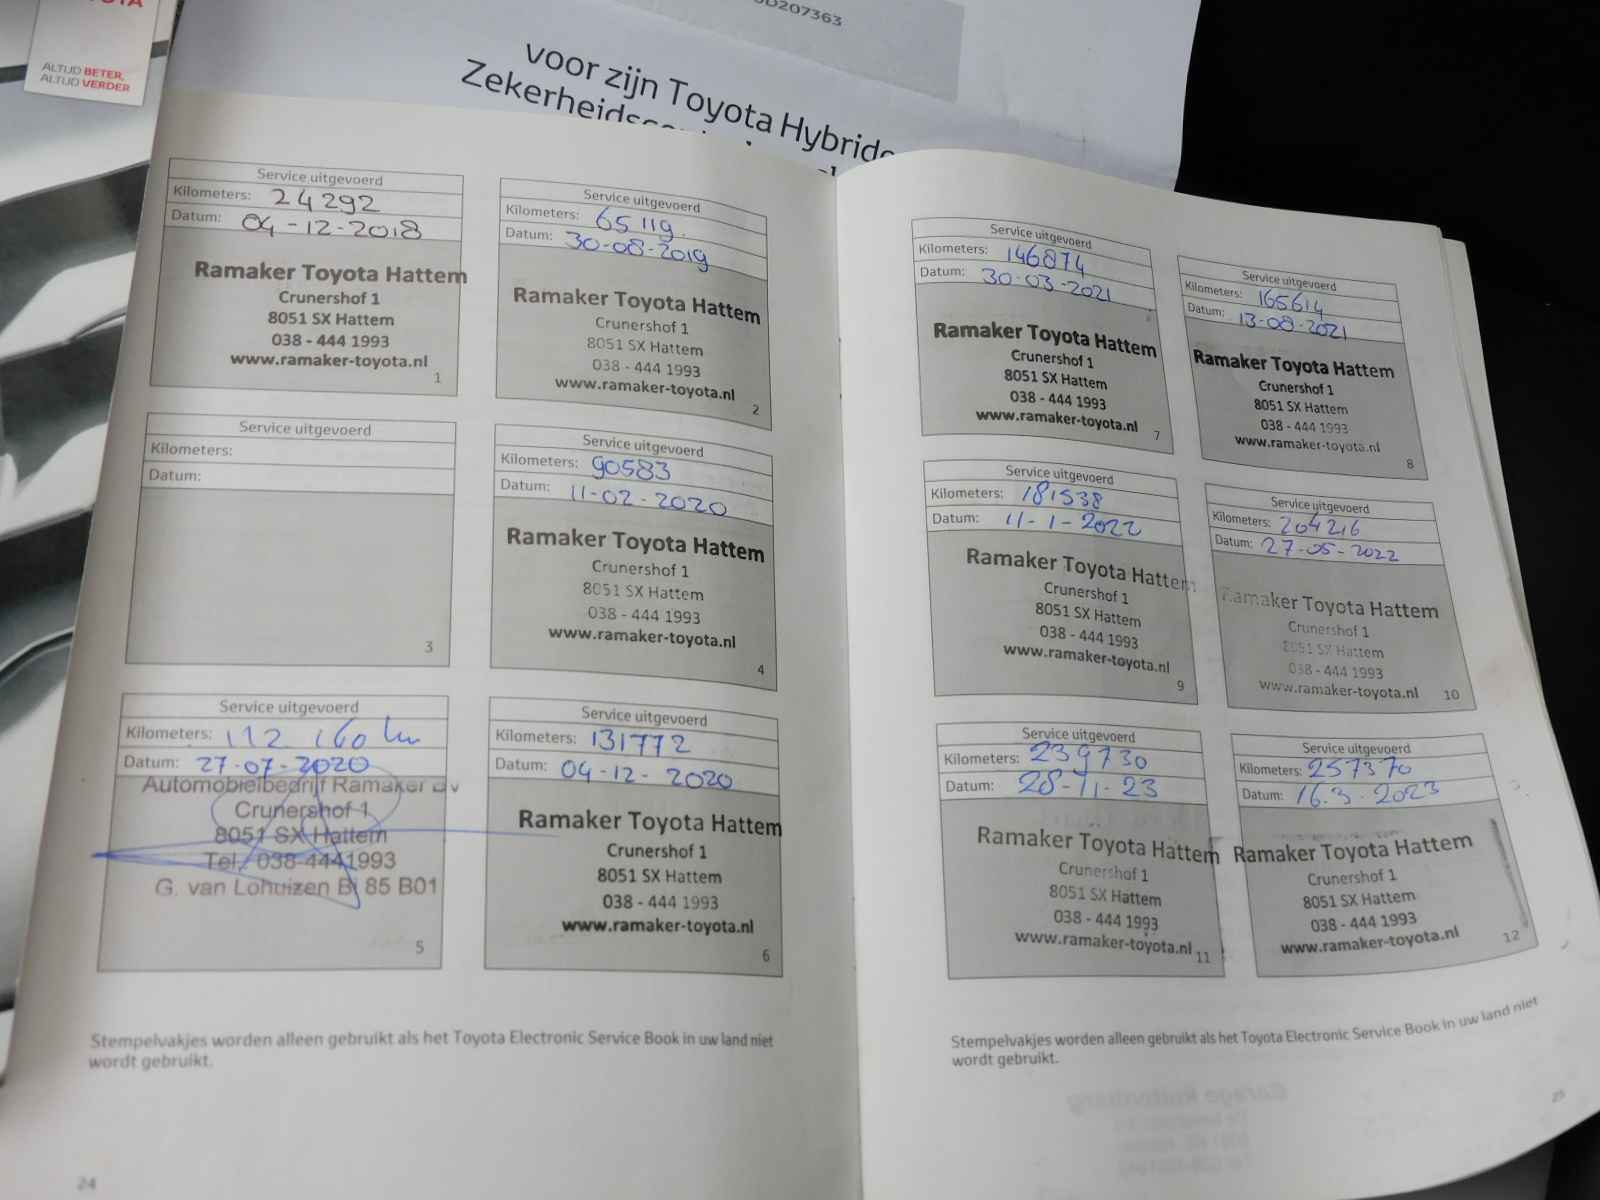 TOYOTA
ALTIJD BETER,
ALTIJD VERDER
D207363
voor zijn Toyota Hybride
Service uitgevoerd
Kilometers: 24292
Datum: 04-12-2018
Ramaker Toyota Hattem
Crunershof 1
8051 SX Hattem
038 - 444 1993
www.ramaker-toyota.nl
1
Service uitgevoerd
Kilometers: 65119
Datum: 30-08-2019
Ramaker Toyota Hattem
Crunershof 1
8051 SX Hattem
038 - 444 1993
www.ramaker-toyota.nl
2
Service uitgevoerd
Kilometers:
Datum:
3
Service uitgevoerd
Kilometers: 90583
Datum: 11-02-2020
Ramaker Toyota Hattem
Crunershof 1
8051 SX Hattem
038 - 444 1993
www.ramaker-toyota.nl
4
Service uitgevoerd
Kilometers: 112 160 km
Datum: 27-07-2020
Automobielbedrijf Ramaker BV
Crunershof 1
8051 SX Hattem
Tel. 038-4441993
G. van Lohuizen BJ 85 B01
5
Service uitgevoerd
Kilometers: 131772
Datum: 04-12-2020
Ramaker Toyota Hattem
Crunershof 1
8051 SX Hattem
038 - 444 1993
www.ramaker-toyota.nl
6
Stempelvakjes worden alleen gebruikt als het Toyota Electronic Service Book in uw land niet
wordt gebruikt.
24
Service uitgevoerd
Kilometers: 146874
Datum: 30-03-2021
Ramaker Toyota Hattem
Crunershof 1
8051 SX Hattem
038 - 444 1993
www.ramaker-toyota.nl
7
Service uitgevoerd
Kilometers: 165614
Datum: 13-08-2021
Ramaker Toyota Hattem
Crunershof 1
8051 SX Hattem
038 - 444 1993
www.ramaker-toyota.nl
8
Service uitgevoerd
Kilometers: 181538
Datum: 11-1-2022
Ramaker Toyota Hattem
Crunershof 1
8051 SX Hattem
038 - 444 1993
www.ramaker-toyota.nl
9
Service uitgevoerd
Kilometers: 204216
Datum: 27-05-2022
Ramaker Toyota Hattem
Crunershof 1
8051 SX Hattem
038 - 444 1993
www.ramaker-toyota.nl
10
Service uitgevoerd
Kilometers: 239730
Datum: 28-11-23
Ramaker Toyota Hattem
Crunershof 1
8051 SX Hattem
038 - 444 1993
www.ramaker-toyota.nl
11
Service uitgevoerd
Kilometers: 257370
Datum: 16.3-2023
Ramaker Toyota Hattem
Crunershof 1
8051 SX Hattem
038 - 444 1993
www.ramaker-toyota.nl
12
Stempelvakjes worden alleen gebruikt als het Toyota Electronic Service Book in uw land niet
wordt gebruikt.
25